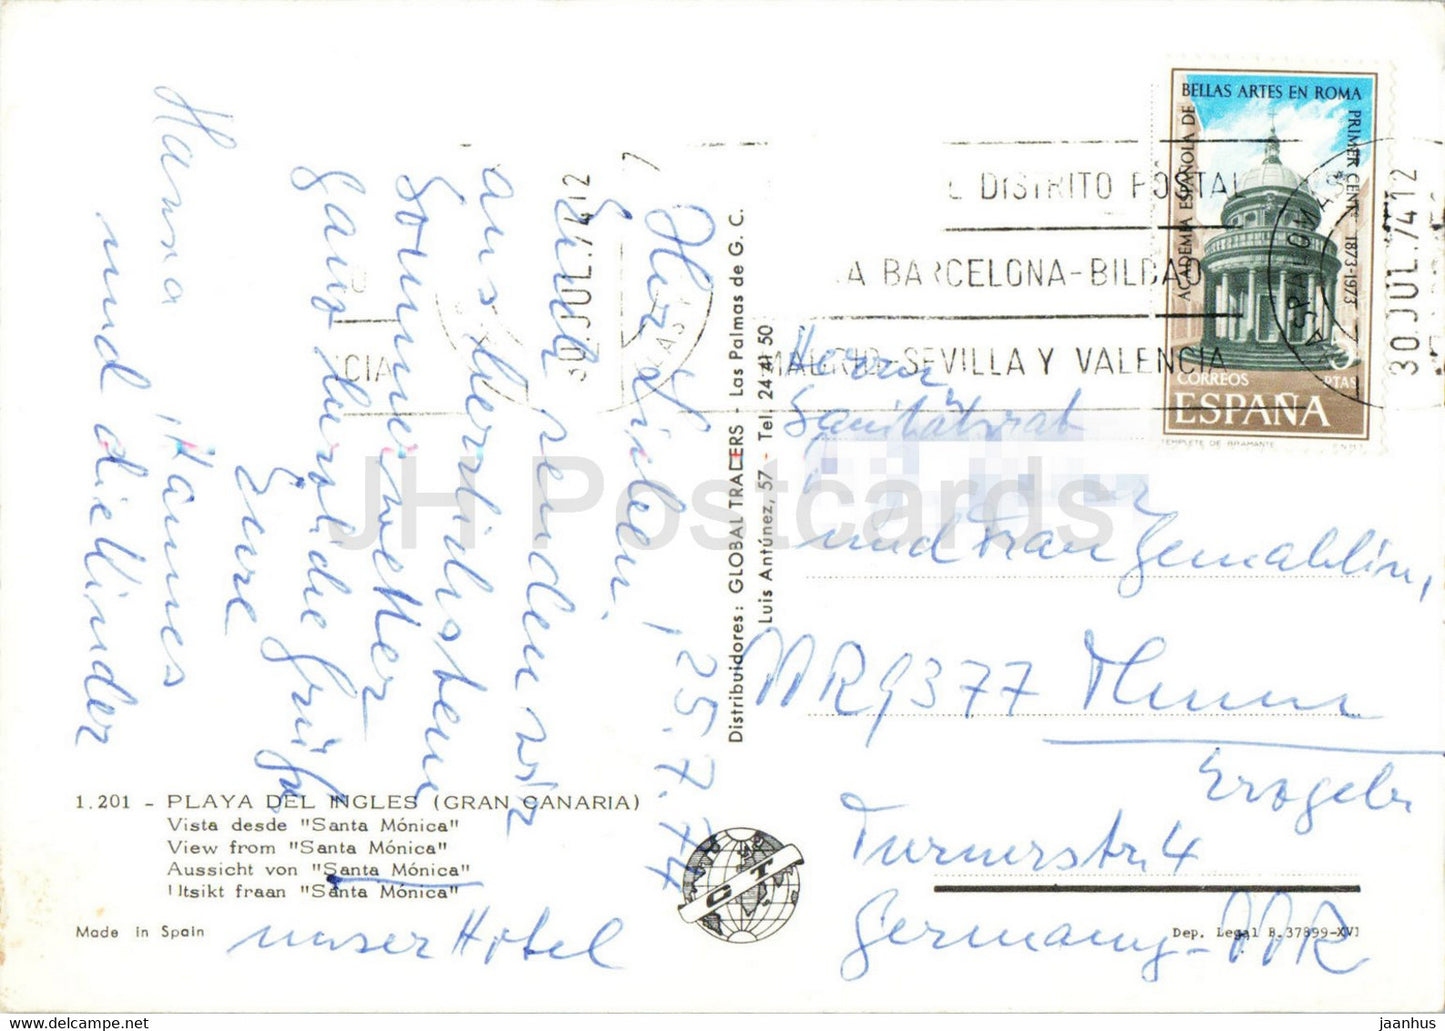 Ihr Lieben, 25.7.74
Euch senden wir
aus herrlichstem
Sommerwetter
ganz herzliche Grüße
Eure
Hanna, Hannes
und die Kinder
1.201 - PLAYA DEL INGLES (GRAN CANARIA)
Vista desde "Santa Mónica"
View from "Santa Mónica"
Aussicht von "Santa Mónica"
Utsikt fraan "Santa Mónica"
Made in Spain
unser Hotel
Distribuidores: GLOBAL TRADERS - Las Palmas de G. C.
Luis Antúnez, 57 - Tel. 24 41 50
G T
BELLAS ARTES EN ROMA
ACADEMIA ESPAÑOLA DE
PRIMER CENT. 1873-1973
8 PTAS
CORREOS
ESPAÑA
TEMPLETE DE BRAMANTE
DISTRITO POSTAL
A BARCELONA-BILBAO
MADRID-SEVILLA Y VALENCIA
LAS PALMAS
30.JUL.74 12
30.JUL.74 12
NCIA
Herrn
Sanitätsrat
und Frau Gemahlin,
DDR 9377 Thum
Erzgeb.
Turnerstr. 4
Germany-DDR
Dep. Legal B. 37899-XVI
JH Postcards
https://www.ebay.com/str/jhpostcards
jaanhus